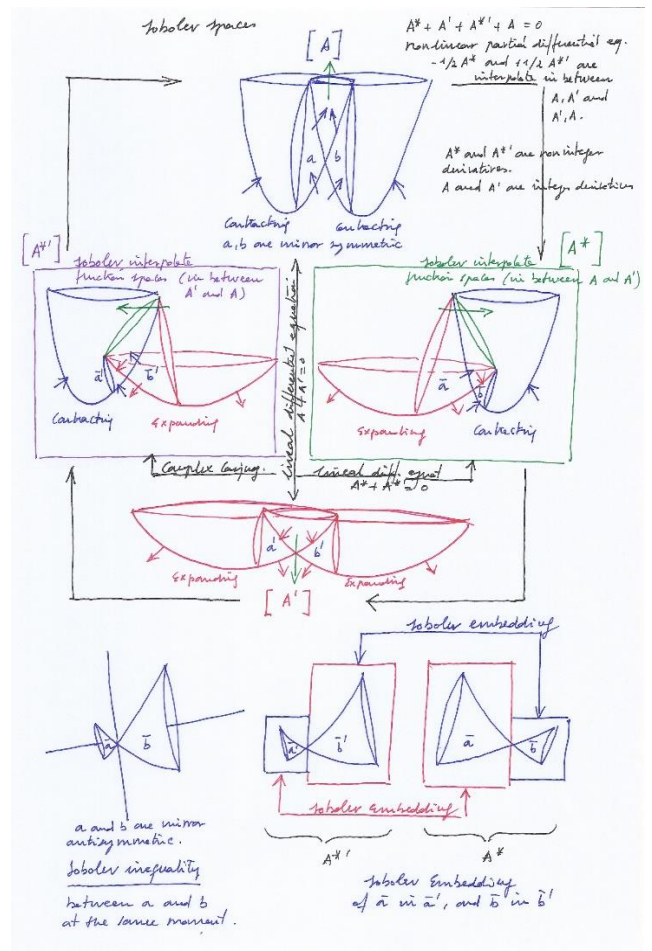 Sobolev spaces
A* + A' + A*' + A = 0
nonlinear partial differential eq.
-1/2 A* and +1/2 A*' are
interpolate in between
A, A' and
A', A.
A* and A*' are noninteger
derivatives.
A and A' are integer derivatives
[A]
a b
Contracting Contracting
a, b are mirror symmetric
[A*']
Sobolev interpolate
function spaces (in between
A' and A)
ā' b̄'
Contracting Expanding
[A*]
Sobolev interpolate
function spaces (in between A and A')
ā b̄
Expanding Contracting
lineal differential equation
A + A' = 0
Complex Conjug.
lineal diff. equat
A* + A*' = 0
a' b'
Expanding Expanding
[A']
Sobolev embedding
ā b̄
ā' b̄'
ā b̄
Sobolev Embedding
A*' A*
a and b are mirror
antisymmetric.
Sobolev inequality
between a and b
at the same moment.
Sobolev Embedding
of ā in ā', and b̄ in b̄'